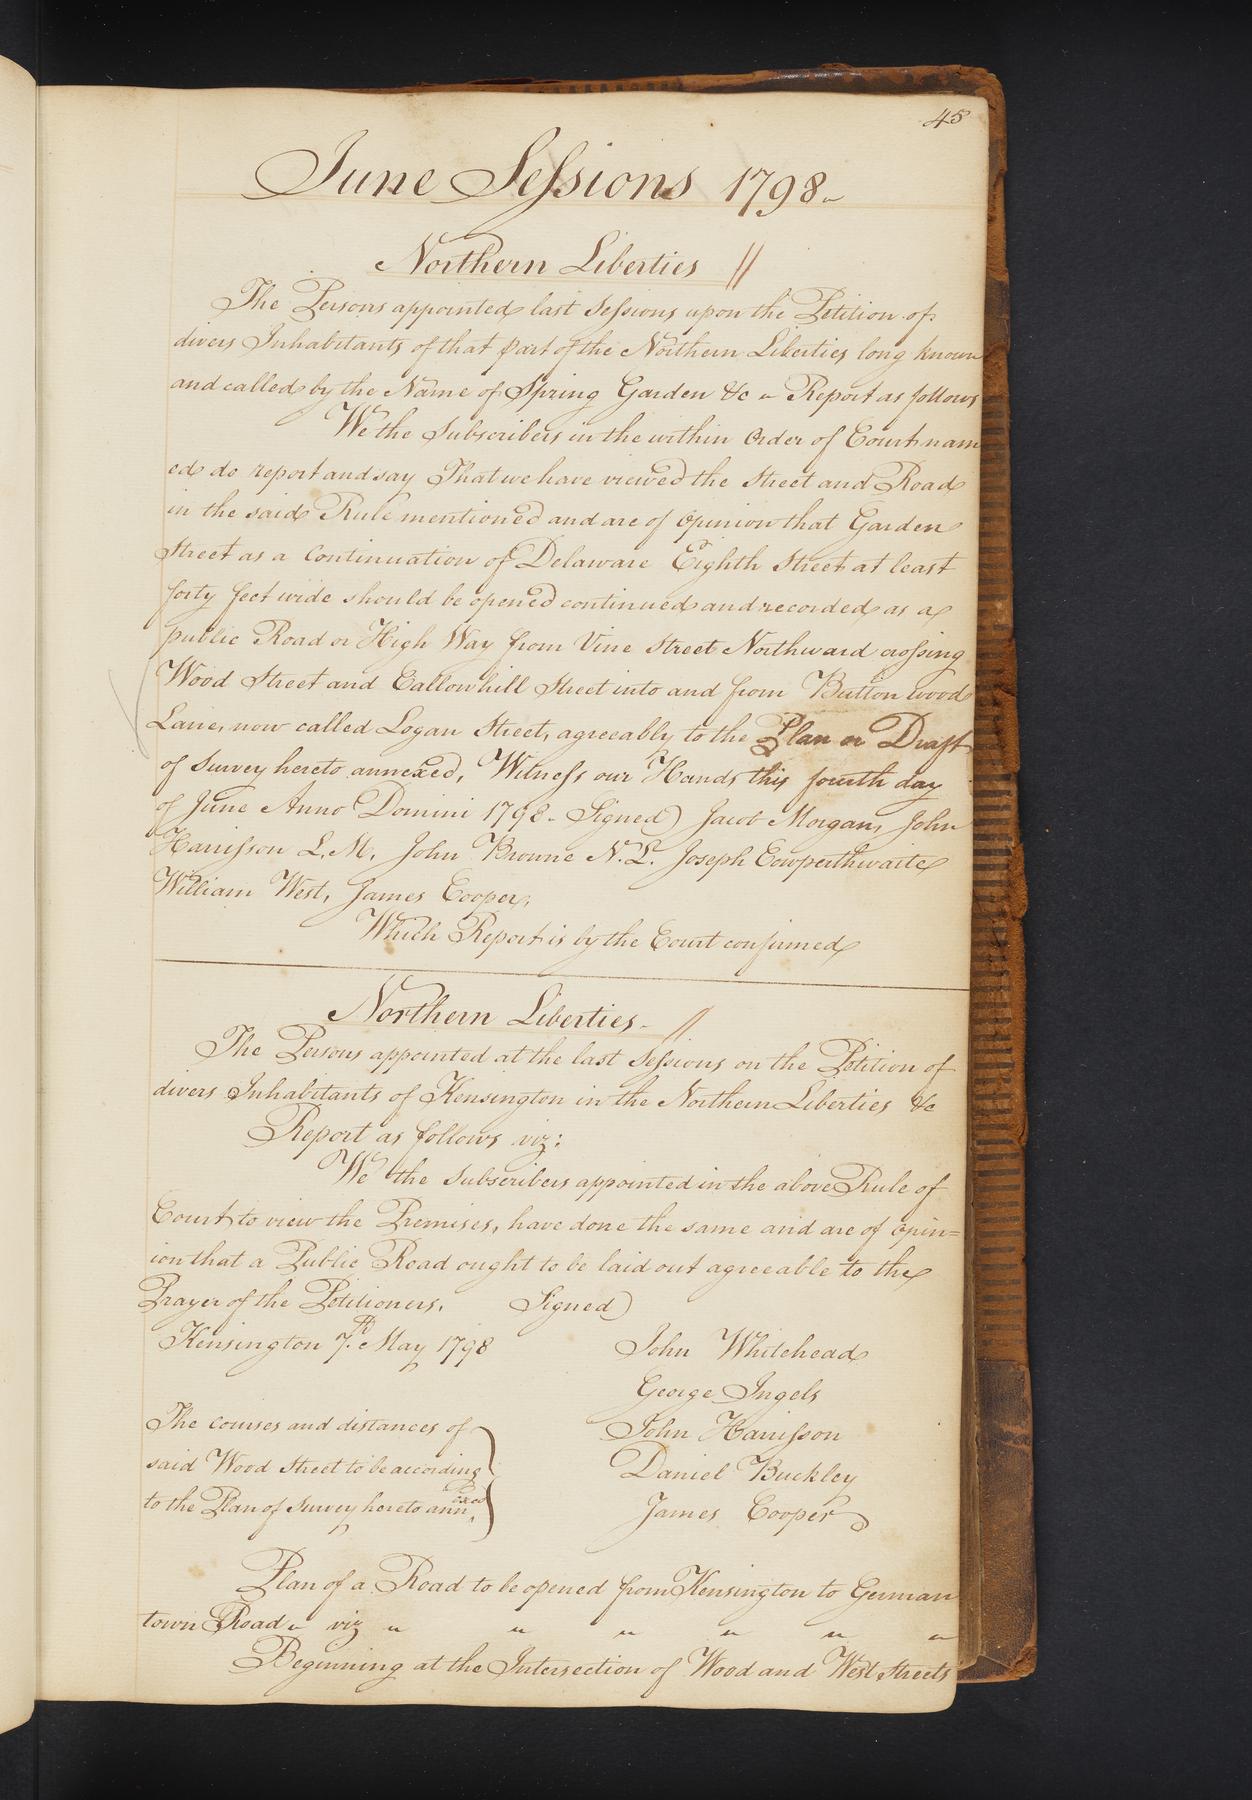 45
June Sessions 1798
Northern Liberties //
The Persons appointed last Sessions upon the Petition of
divers Inhabitants of that part of the Northern Liberties long known
and called by the Name of Spring Garden &c Report as follows
We the Subscribers in the within Order of Court nam
ed do report and say That we have viewed the Street and Road
in the said Rule mentioned and are of opinion that Garden
Street as a Continuation of Delaware Eighth Street at least
forty feet wide should be opened continued and recorded as a
public Road or High Way from Vine Street Northward crossing
Wood Street and Callowhill Street into and from Button wood
Lane, now called Logan Street, agreeably to the Plan or Draft
of Survey hereto annexed, Witness our Hands this fourth day
of June Anno Domini 1798. Signed) Jacob Morgan, John
Harrisson L. M. John Browne N. L. Joseph Cowperthwaite
William West, James Cooper,
Which Report is by the Court confirmed
Northern Liberties //
The Persons appointed at the last Sessions on the Petition of
divers Inhabitants of Kensington in the Northern Liberties &c
Report as follows viz:
We the subscribers appointed in the above Rule of
Court to view the Premises, have done the same and are of opin=
ion that a Public Road ought to be laid out agreeable to the
Prayer of the Petitioners. Signed)
Kensington 7th May 1798
John Whitehead
George Ingels
John Harrisson
Daniel Buckley
James Cooper
The courses and distances of
said Wood Street to be according
to the Plan of Survey hereto annexed
Plan of a Road to be opened from Kensington to German
town Road viz
Beginning at the Intersection of Wood and West Streets